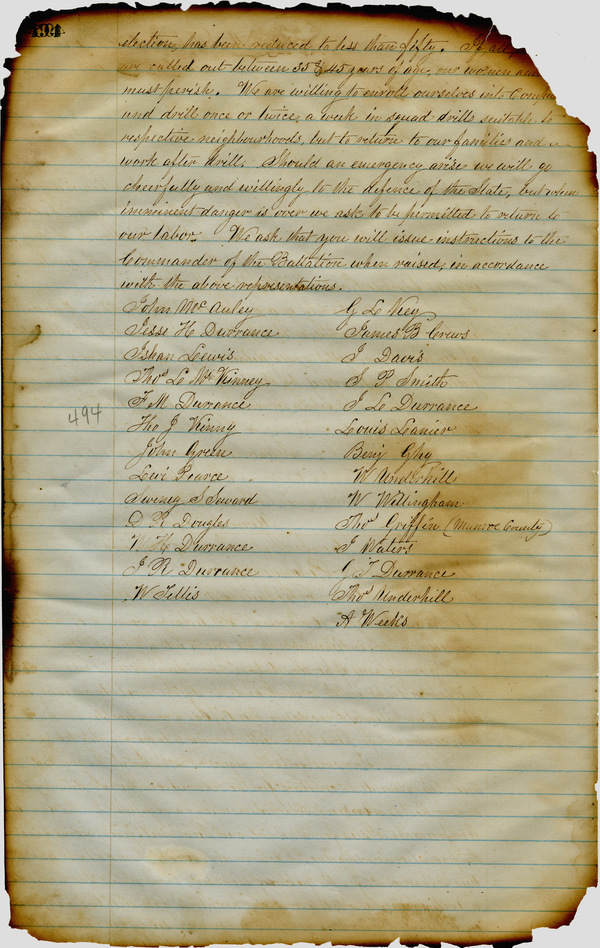 494
election, has been reduced to less than fifty. If all
are called out between 35 & 45 years of age, our women and
must perish. We are willing to enroll ourselves into
and drill once or twice a week in squad drills suitable to
respective neighbourhoods, but to return to our families and
work after drill. Should an emergency arise we will go
cheerfully and willingly to the defence of the State, but when
imminent danger is over we ask to be permitted to return to
our labor. We ask that you will issue instructions to the
Commander of the Battalion when raised, in accordance
with the above representations.
John McAuley G L Key
Jesse H Durrance James B Crews
Ishan Leewis J Davis
Thos L McKinney S P Smith
F M Durrance J L Durrance
494
Tho J Kinny Louis Lanier
John Green Benj Guy
Levi Pearce W Underhill
Sweney S Seward W Willingham
D R Dougles Thos Griffin (Munroe County)
W H Durrance J Waters
J R Durrance G T Durrance
W Tillis Thos Underhill
A Weeks